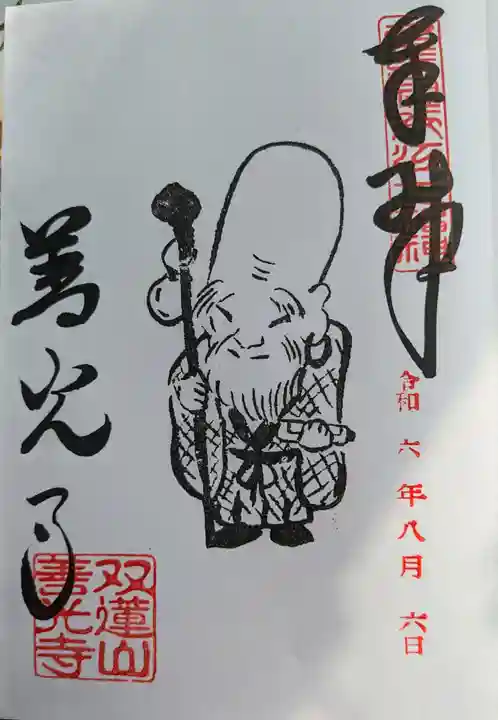 奉拝
令和六年八月六日
善光寺
双蓮山
善光寺